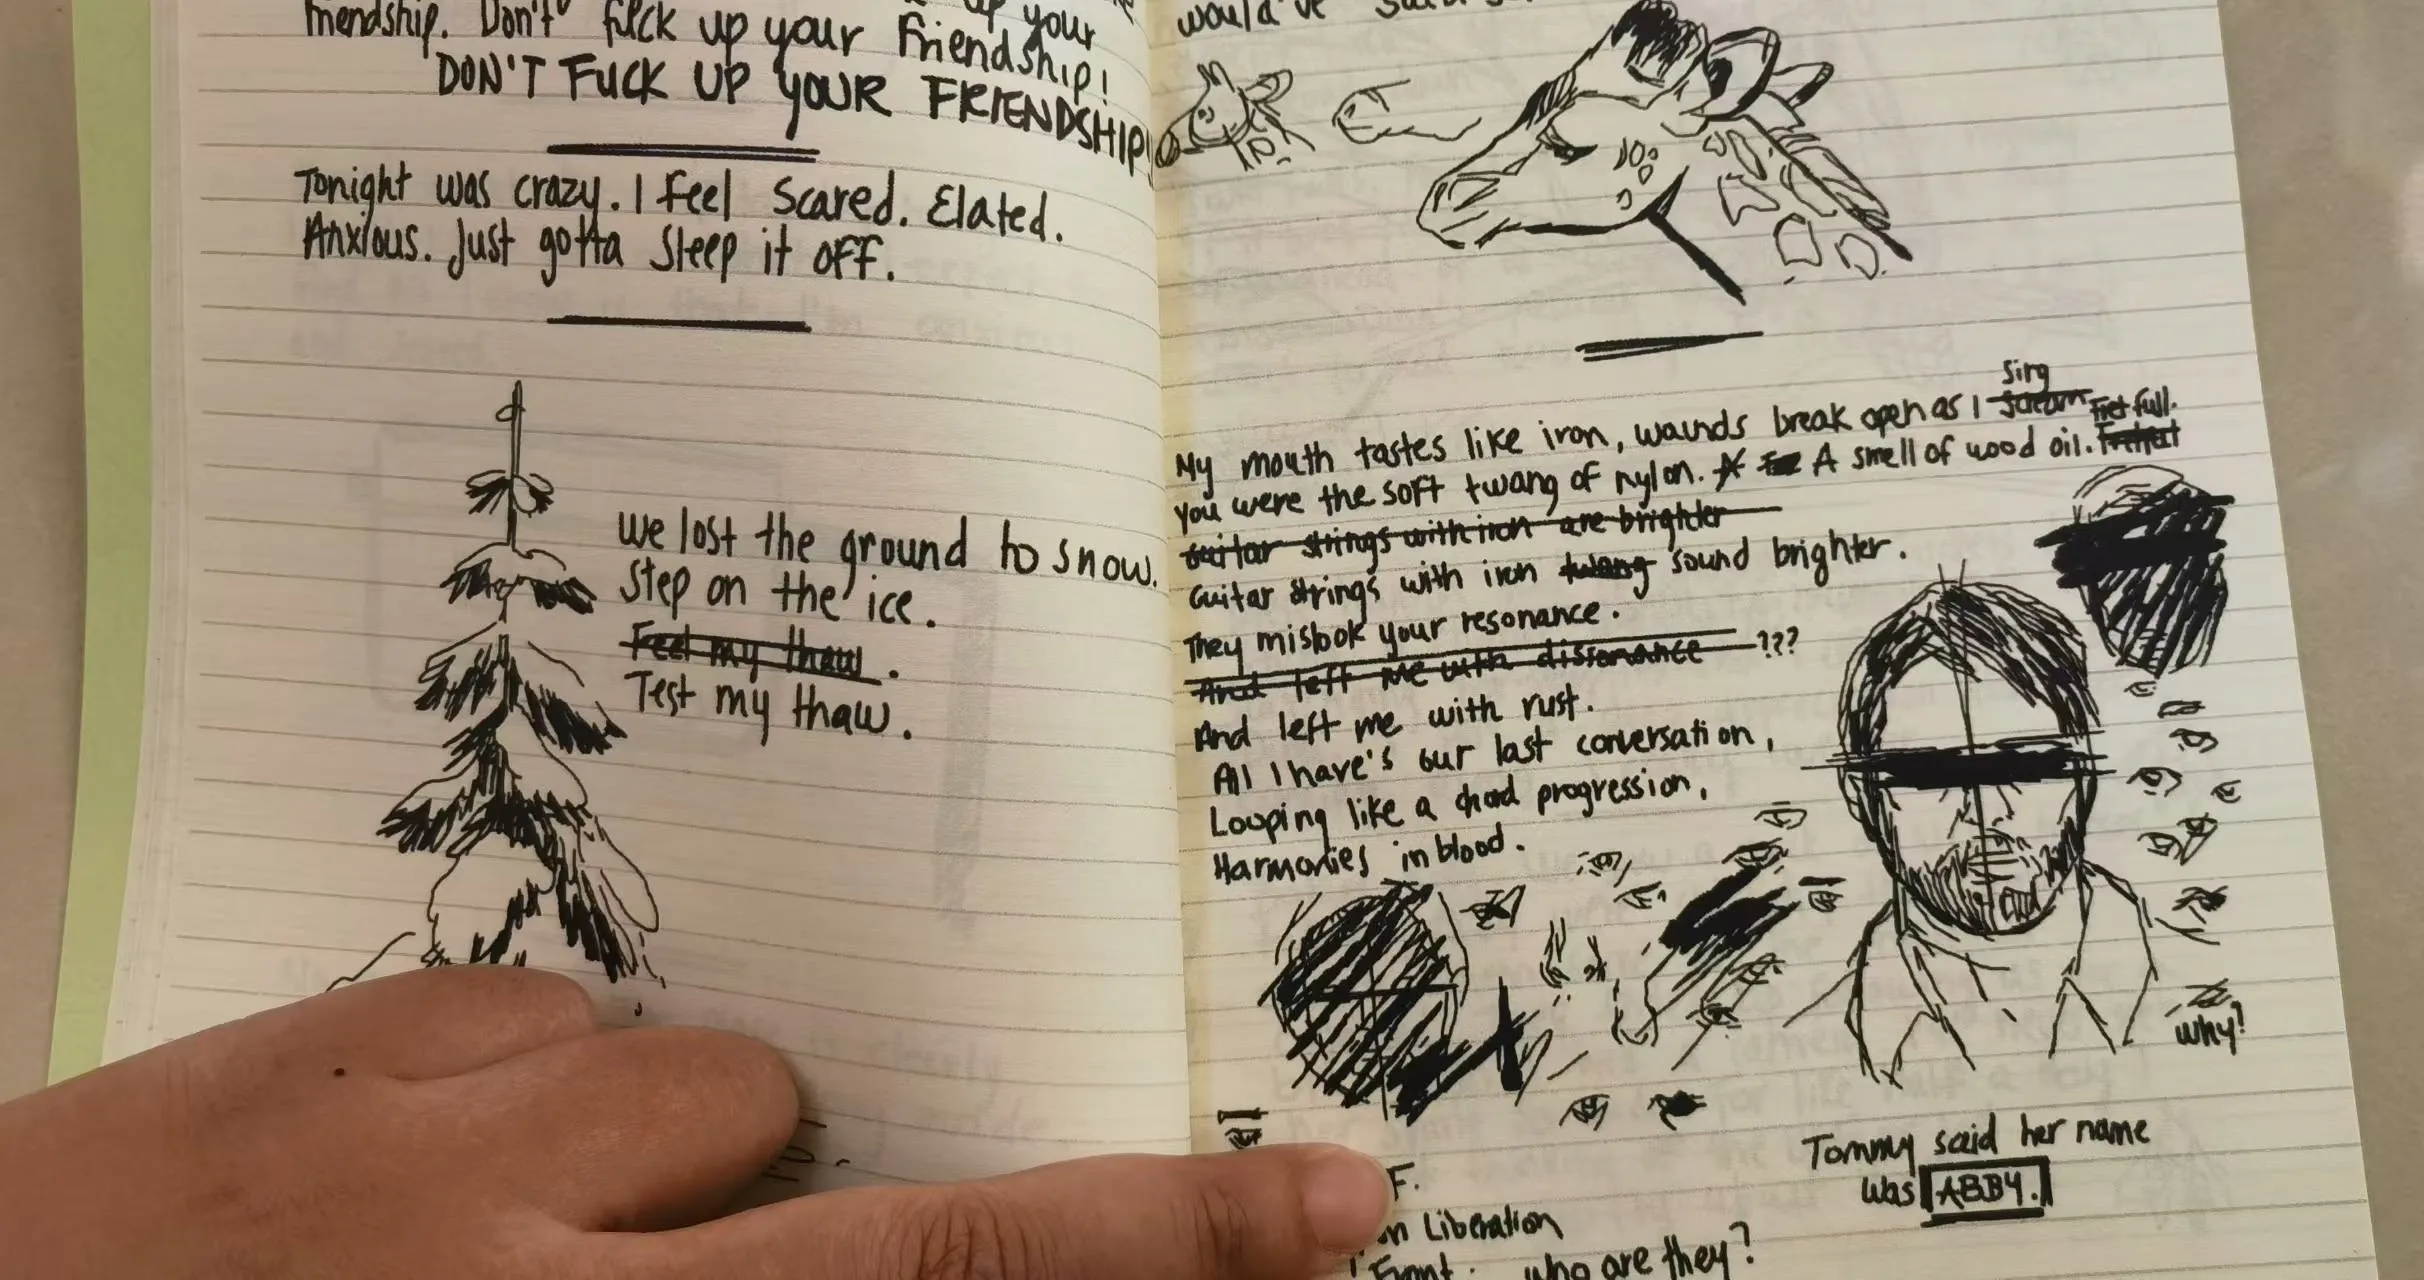 up your
friendship. Don't fuck up your friendship!
DON'T FUCK UP YOUR FRIENDSHIP!
Tonight was crazy. I feel scared. Elated.
Anxious. Just gotta sleep it off.
We lost the ground to snow.
Step on the ice.
Feel my thaw.
Test my thaw.
would've
sing
My mouth tastes like iron, wounds break open as I scream Fret full.
You were the soft twang of nylon. A A smell of wood oil.
Guitar strings with iron are brighter
Guitar strings with iron twang sound brighter.
They mistook your resonance.
And left me with dissonance ???
And left me with rust.
All I have's our last conversation,
Looping like a chord progression,
Harmonies in blood.
why?
Tommy said her name
was ABBY.
F.
on Liberation
Front. who are they?